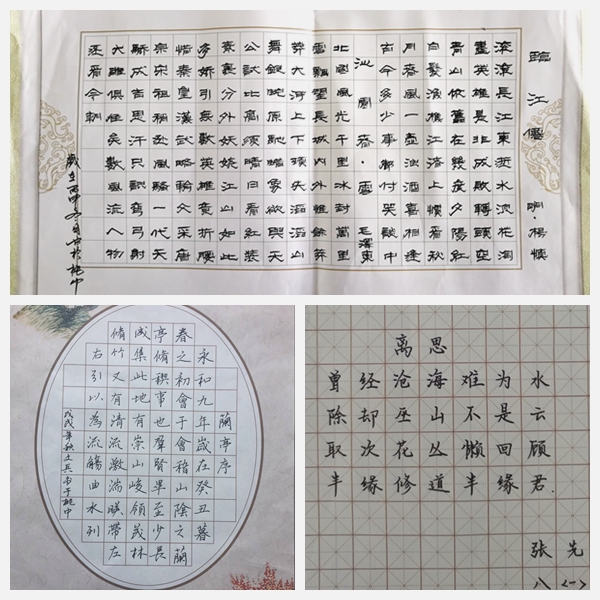 臨江僊 明·楊慎
滾滾長江東逝水浪花淘
盡英雄是非成敗轉頭空
青山依舊在幾度夕陽紅
白髮漁樵江渚上慣看秋
月春風一壺濁酒喜相逢
古今多少事都付笑談中
沁園春·雪 毛澤東
北國風光千里冰封萬里
雪飄望長城內外惟餘莽
莽大河上下頓失滔滔山
舞銀蛇原馳蠟象欲與天
公試比高須晴日看紅裝
素裹分外妖嬈江山如此
多嬌引無數英雄競折腰
惜秦皇漢武略輸文采唐
宗宋祖稍遜風騷一代天
驕成吉思汗只識彎弓射
大雕俱往矣數風流人物
還看今朝
歲在丙申冬
蘭亭序
永和九年歲在癸丑暮
春之初會于會稽山陰之蘭
亭脩稧事也羣賢畢至少長
咸集此地有崇山峻領茂林
脩竹又有清流激湍暎帶左
右引以為流觴曲水列
戊戌年秋
离思
曾经沧海难为水
除却巫山不是云
取次花丛懒回顾
半缘修道半缘君.
张先
八<一>